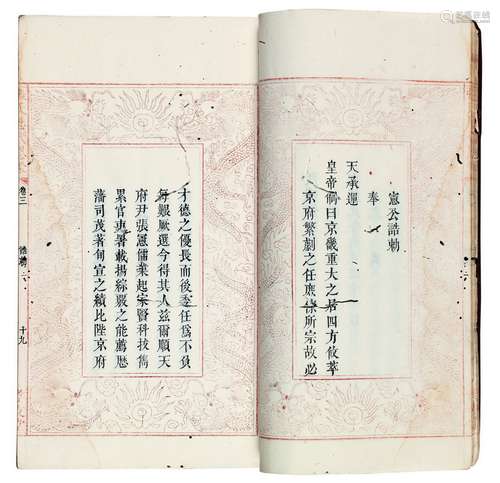 憲公誥勅
奉
天承運
皇帝制曰京畿重大之地四方攸萃
京府繁劇之任庶條所宗故必
才德之優長而後委任爲不負
每艱厥選今得其人兹爾順天
府尹張憲儒業起家賢科拔雋
累官曹署載揚綜覈之能薦歷
藩司茂著旬宣之績比陞京府
卷三
誥勅
十九